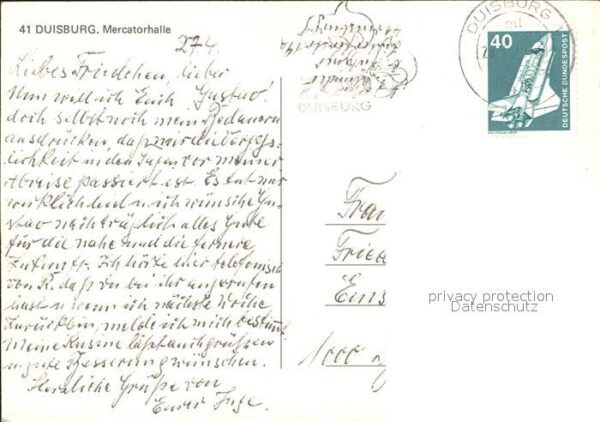 41 DUISBURG. Mercatorhalle
27.4.
Liebes Friedchen, lieber
Nun will ich Euch Gustav!
doch selbst noch mein Bedauern
ausdrücken, daß mir die
lichkeit in den Tagen vor meiner
Abreise passiert ist. Es tut mir
wirklich leid und ich wünsche Gu-
stav nachträglich alles Gute
für die nahe und die fernere
Zukunft. Ich hörte hier telefonisch
von R. daß du bei ihr angerufen
hast u. wenn ich nächste Woche
zurück bin, melde ich mich bestimmt.
Meine Kusine läßt auch grüßen
u. gute Besserung wünschen.
Herzliche Grüße von
Eurer Inge.
DUISBURG
DUISBURG
40
DEUTSCHE BUNDESPOST
Frau
Fried
Eins
1000
privacy protection
Datenschutz